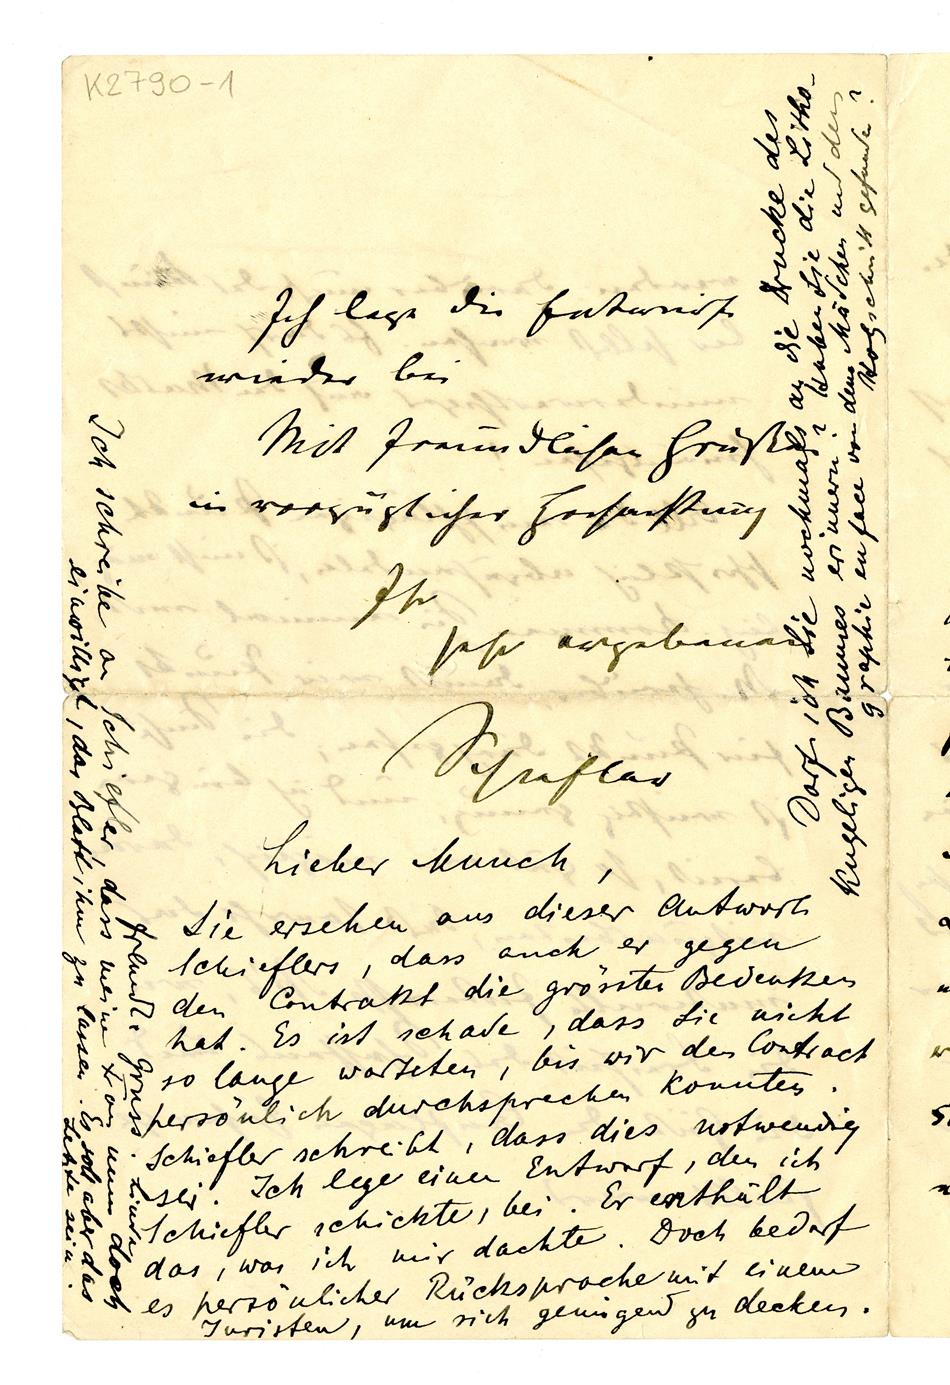 K2790-1
Ich lege die Entwürfe
wieder bei
Mit freundlichen Grüßen
in vorzüglicher Hochachtung
Ihr
sehr ergebener
Schiefler
Lieber Munch,
Sie ersehen aus dieser Antwort
Schieflers, dass auch er gegen
den Contrakt die grössten Bedenken
hat. Es ist schade, dass Sie nicht
so lange warteten, bis wir den Contract
persönlich durchsprechen konnten.
Schiefler schreibt, dass dies notwendig
sei. Ich lege einen Entwurf, den ich
Schiefler schickte, bei. Er enthält
das, was ich mir dachte. Doch bedarf
es persönlicher Rücksprache mit einem
Juristen, um sich genügend zu decken.
Freundl. Gruss. Linde
Ich schreibe an Schiefler, dass meine Frau nun doch
einwilligt, das Blatt ihm zu lassen. Es soll aber das
Letzte sein.
Darf ich Sie nochmals an die Drucke des
kugeligen Baumes erinnern? Haben Sie die Litho-
graphie en face von dem Mädchen und den
Holzschnitt gefunden?